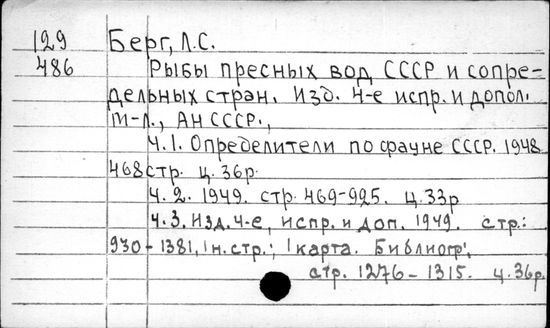 129 Берг, Л.С.
486 Рыбы пресных вод СССР и сопре-
дельных стран. Изд. 4-е испр. и допол.
М-Л., АН СССР.,
Ч.1. Определители по фауне СССР. 1948
468 стр. ц. 36р.
Ч. 2. 1949. стр. 469-925. ц. 33р
Ч. 3. Изд. 4-е, испр. и доп. 1949. стр.:
930-1381, 1 н. стр.; 1 карта. Библиогр.:
стр. 1276-1315. ц. 36р.